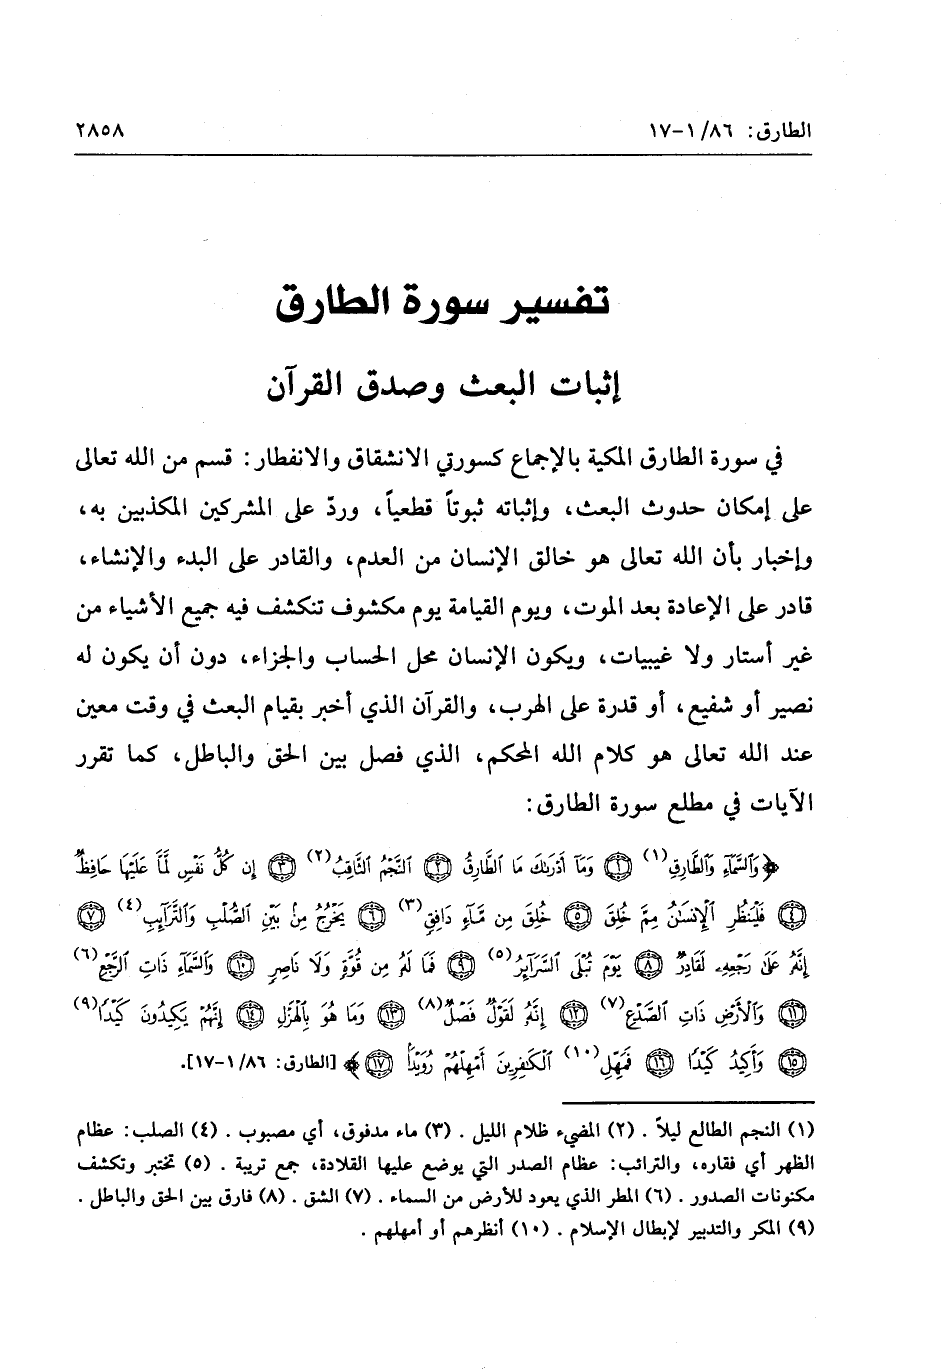 الطارق: ٨٦/ ١-١٧ ٢٨٥٨
تفسير سورة الطارق
إثبات البعث وصدق القرآن
في سورة الطارق المكية بالإجماع كسورتي الانشقاق والانفطار: قسم من الله تعالى
على إمكان حدوث البعث، وإثباته ثبوتاً قطعياً، وردّ على المشركين المكذبين به،
وإخبار بأن الله تعالى هو خالق الإنسان من العدم، والقادر على البدء والإنشاء،
قادر على الإعادة بعد الموت، ويوم القيامة يوم مكشوف تنكشف فيه جميع الأشياء من
غير أستار ولا غيبيات، ويكون الإنسان محل الحساب والجزاء، دون أن يكون له
نصير أو شفيع، أو قدرة على الهرب، والقرآن الذي أخبر بقيام البعث في وقت معين
عند الله تعالى هو كلام الله المحكم، الذي فصل بين الحق والباطل، كما تقرر
الآيات في مطلع سورة الطارق:
﴿وَٱلسَّمَآءِ وَٱلطَّارِقِ(١) ۝١ وَمَآ أَدۡرَىٰكَ مَا ٱلطَّارِقُ ۝٢ ٱلنَّجۡمُ ٱلثَّاقِبُ(٢) ۝٣ إِن كُلُّ نَفۡسٖ لَّمَّا عَلَيۡهَا حَافِظٞ
۝٤ فَلۡيَنظُرِ ٱلۡإِنسَٰنُ مِمَّ خُلِقَ ۝٥ خُلِقَ مِن مَّآءٖ دَافِقٖ(٣) ۝٦ يَخۡرُجُ مِنۢ بَيۡنِ ٱلصُّلۡبِ وَٱلتَّرَآئِبِ(٤) ۝٧
إِنَّهُۥ عَلَىٰ رَجۡعِهِۦ لَقَادِرٞ ۝٨ يَوۡمَ تُبۡلَى ٱلسَّرَآئِرُ(٥) ۝٩ فَمَا لَهُۥ مِن قُوَّةٖ وَلَا نَاصِرٖ ۝١٠ وَٱلسَّمَآءِ ذَاتِ ٱلرَّجۡعِ(٦)
۝١١ وَٱلۡأَرۡضِ ذَاتِ ٱلصَّدۡعِ(٧) ۝١٢ إِنَّهُۥ لَقَوۡلٞ فَصۡلٞ(٨) ۝١٣ وَمَا هُوَ بِٱلۡهَزۡلِ ۝١٤ إِنَّهُمۡ يَكِيدُونَ كَيۡدٗا(٩)
۝١٥ وَأَكِيدُ كَيۡدٗا ۝١٦ فَمَهِّلِ(١٠) ٱلۡكَٰفِرِينَ أَمۡهِلۡهُمۡ رُوَيۡدَۢا ۝١٧﴾ [الطارق: ٨٦/ ١-١٧].
(١) النجم الطالع ليلاً . (٢) المضيء ظلام الليل . (٣) ماء مدفوق، أي مصبوب . (٤) الصلب: عظام
الظهر أي فقاره، والترائب: عظام الصدر التي يوضع عليها القلادة، جمع تريبة . (٥) تختبر وتكشف
مكنونات الصدور . (٦) المطر الذي يعود للأرض من السماء . (٧) الشق . (٨) فارق بين الحق والباطل .
(٩) المكر والتدبير لإبطال الإسلام . (١٠) أنظرهم أو أمهلهم .